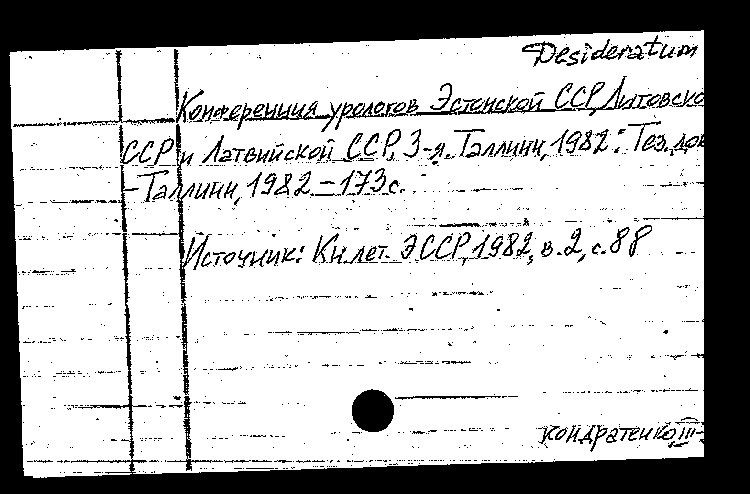 Desideratum
Конференция урологов Эстонской ССР, Литовско
ССР и Латвийской ССР, 3-я. Таллинн, 1982: Тез. док
-Таллинн, 1982 – 173 с.
Источник: Кн. лет. ЭССР, 1982, в. 2, с. 88
Кондратенко III-